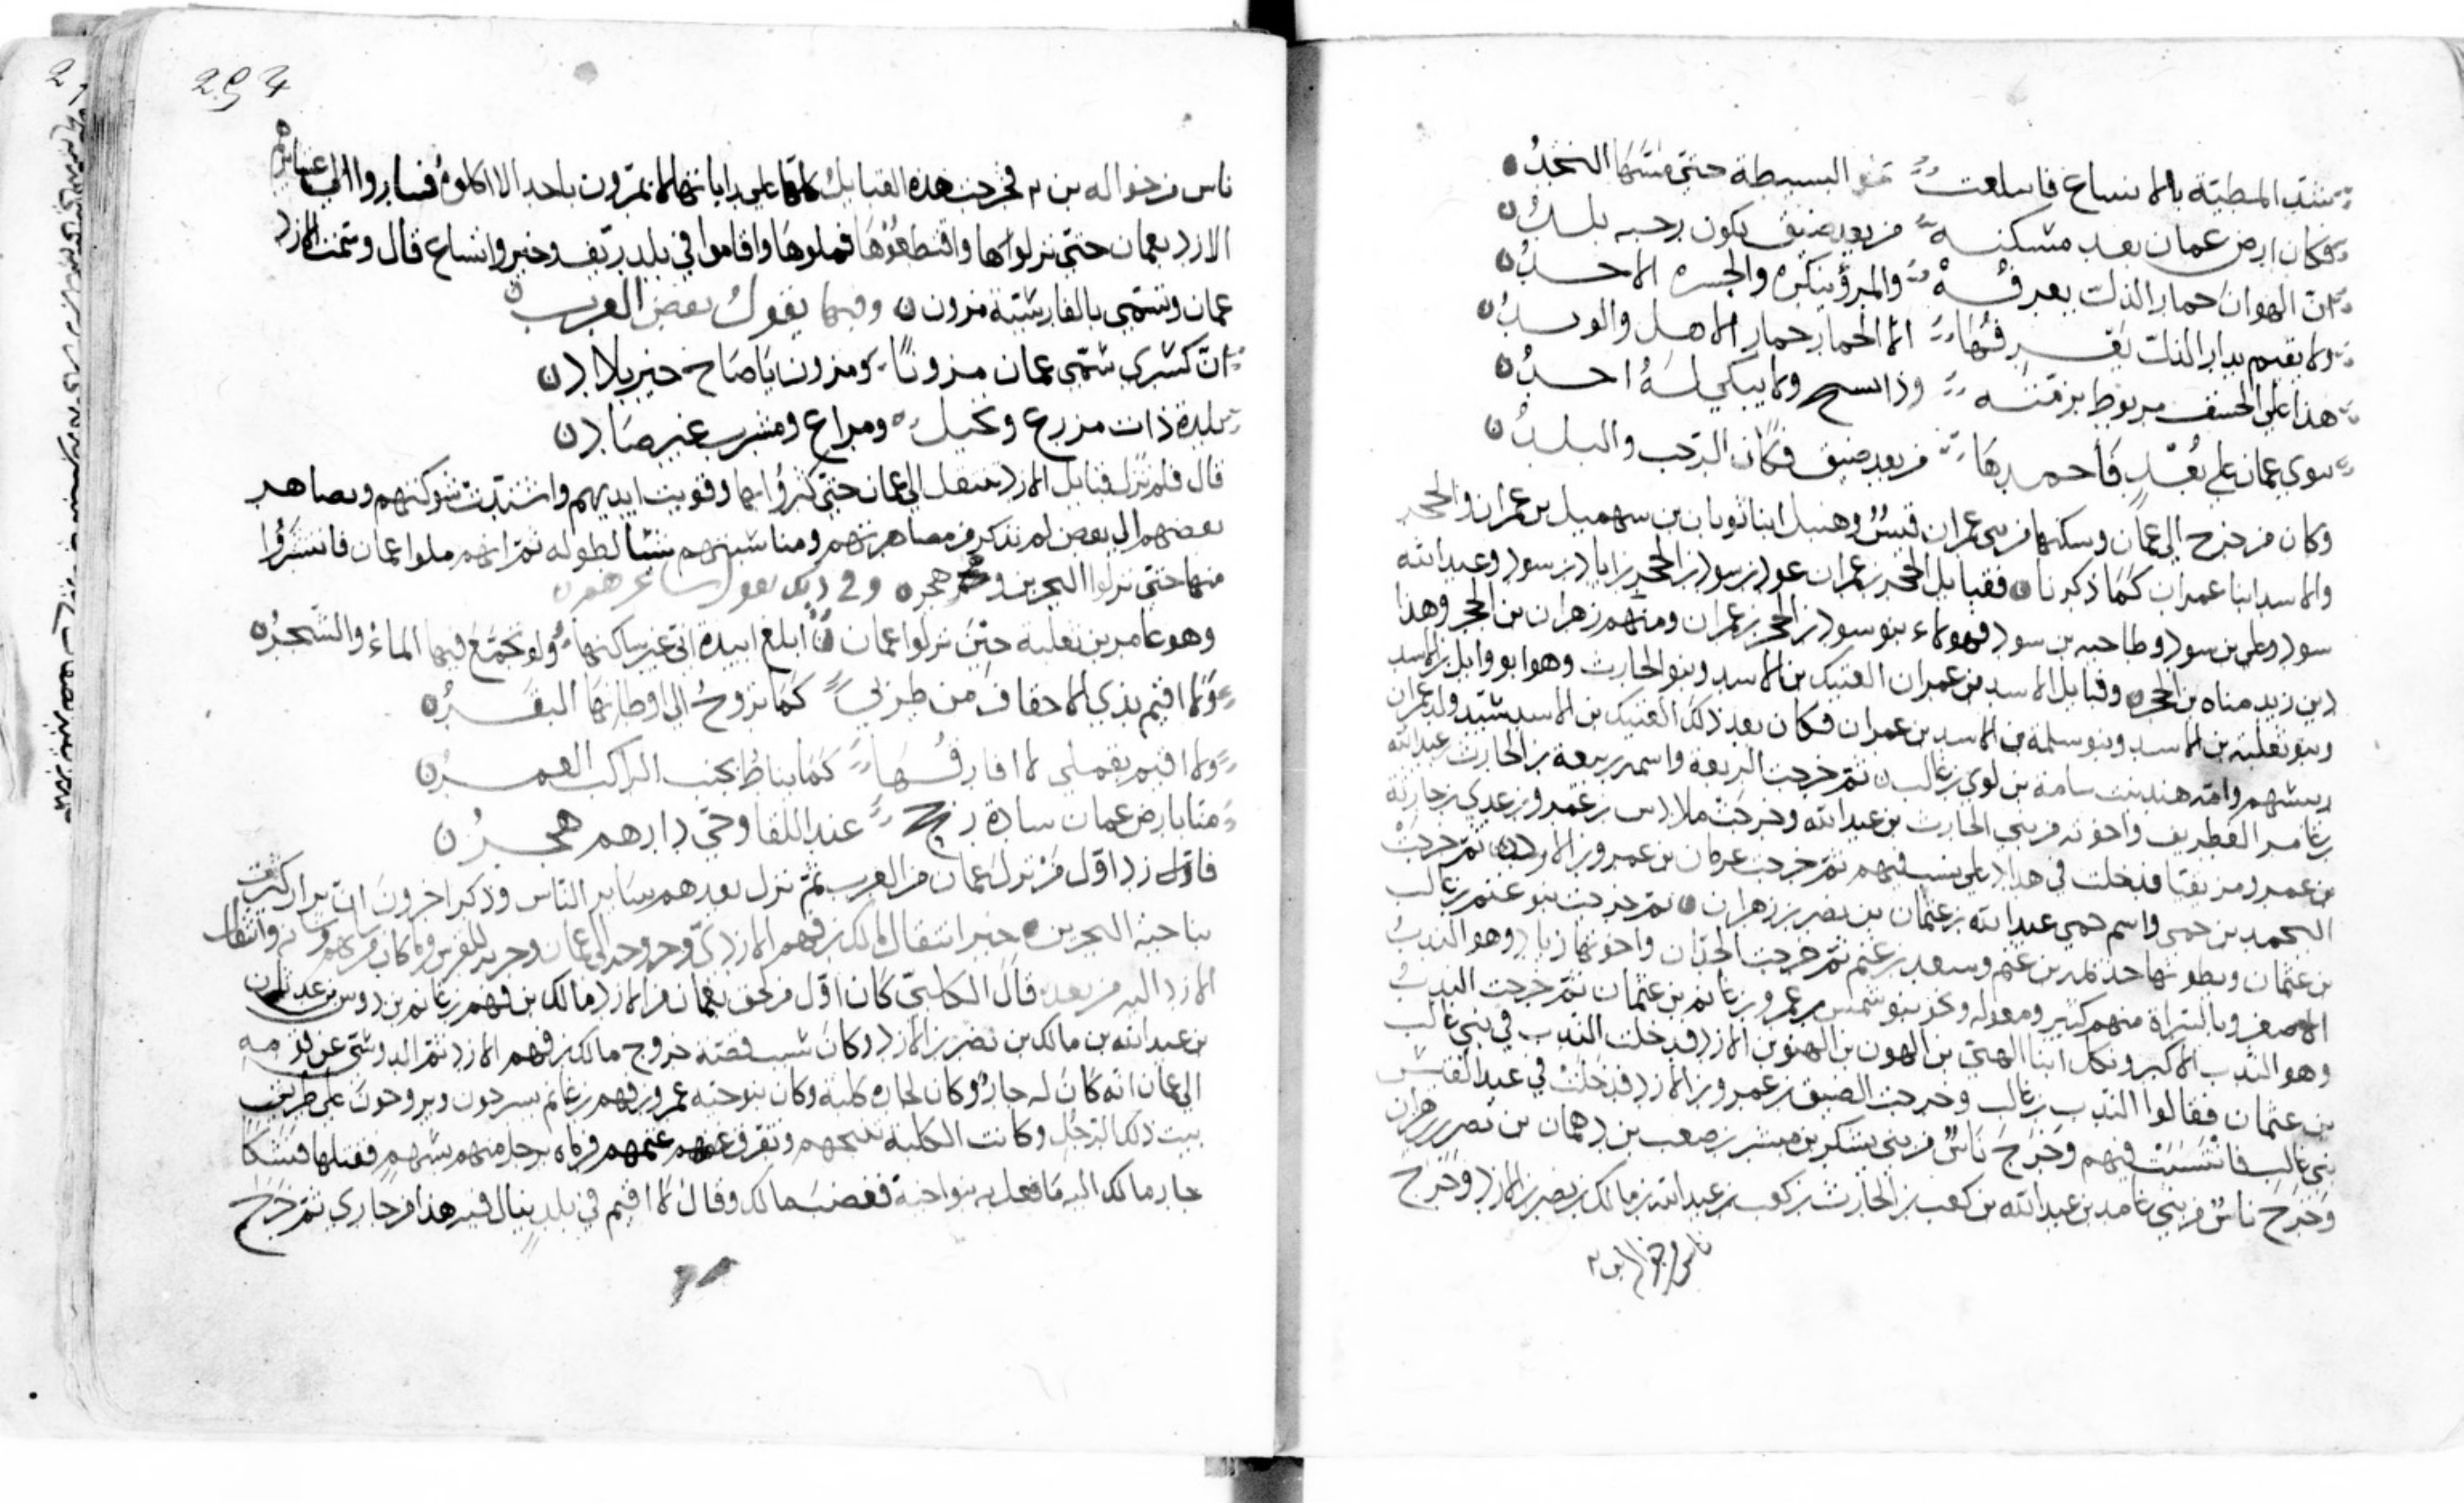 شد المطية بالانساع فانبلعت نحو البسيطة حتى مسها النجدُ
فكان ارض عمان بعد مسكنه من بعد ضيق يكون رحبه بلدُ
انّ الهوان حمار الذل يعرفه والمرؤ ينكره والجسره الاحدُ
ولا يقيم بدار الذل يعرفها الا الحمار حمار الاهل والوتدُ
هذا على الخسف مربوط برمته وذا يشج ولا يبكي لهُ احدُ
سوى عمان على بُعْدٍ فاحمدها من بعد ضيق فكان الرحب والبلدُ
وكان من خرج الى عمان وسكنها من بني عمران قيسٌ وهنبل ابنا ثوبان بن سهميل بن عمران والحجر
والاسد ابنا عمران كما ذكرنا فقبايل الحجر بن عمران عود بن سود بن الحجر زاياد بن سود وعبد الله
سود وعلى بن سود وطاحيه بن سود فهولاء بنو سود بن الحجر بن عمران ومنهم زهران بن الحجر وهذا
دبن زيد مناه بن الحجر وقبايل الاسد بن عمران العتيك بن الاسد وبنو الحارث وهو ابو وايل بن الاسد
وبنو ثعلبه بن الاسد وبنو سلمة بن الاسد بن عمران فكان بعد ذلك العتيك بن الاسد سيّد ولد عمران
ريسهم وامّه هند بنت سامة بن لوي بن غالب ثم خرجت الربعة واسمه ربيعة بن الحارث عبد الله
بن عامر الغطريف واخوته من بني الحارث بن عبد الله وخرجت ملادس بن عمرو بن عدي بن حارثة
بن عمرو مزيقيا فدخلت في هداد على نسب فيهم ثم خرجت عرمان بن عمرو بن الازد ثم خرجت
اليحمد بن حمى واسم حمى عبد الله بن عثمان بن نصر بن زهران ثم خرجت بنو غنم بن غالب
بن عثمان وبطونها حد لمد بن غنم وسعد بن غنم ثم خرجت الحدان واخوتها زياد وهو الندبُ
الاصغر وبالسراة منهم كثير ومعوله ونحو بنو شمس بن عمرو بن غانم بن عثمان ثم خرجت الندبُ
وهو الندب الاكبر وبكل ابنا الهتى بن الهون بن الهنو بن الازد فدخلت الندب في بني غالب
بن عثمان فقالوا الندب بن غالب وخرجت الصيق بن عمرو بن الازد فدخلت في عبد القيس
بني غالب فانتسبت فيهم وخَرَجَ ناسٌ من بني يشكر بن مبشر بن صعب بن دهمان بن نصر بن زهران
وَخَرَجَ ناسٌ من بني غامد بن عبد الله بن كعب بن الحارث بن كعب بن عبد الله بن مالك بن نصر بن الازد وَخرج
ناس من خواله بن
294
ناس من خواله بن فخرجت هذه القبايل كلها على راياتها لا يمرّون باحد الا اكلوهُ فساروا الى
الازد بعمان حتى نزلوها واقتطعُوْهَا فملوها واقاموا في بلد ريف وخير واتساع قال وسمّت الازد
عمان وتسمى بالفارسّية مزون وفيها يقول بعض العرب
انّ كسْرى سمّى عمان مزونًا ومزون يا صَاح خير بلاد
بلدة ذات مزرع ونخيل ومراع ومشرب غير صَاد
قال فلم تزل قبايل الازد تنتقل الى عمان حتى كثرُوا بها وقويت ايديهم واشتدّت شوكتهم وتصاهر
بعضهم الى بعض لم نذكر من مصاهرتهم ومناسبتهم شيئا لطوله ثم انهم ملوا عمان فانتشرُوا
منها حتى نزلوا البحرين وهجر وفي ذلك يقول شاعرهم
وهو عامر بن ثعلبة حين نزلوا عمان ابلغ ابيدة انى غير ساكنها ولو تجمّع فيها الماءُ والشّجرُ
ولا اقيم بذي الاحقاف من طربي كما تروحُ الى اوطانها البقرُ
ولا اقيم بغملى لا افارقُها كما يناطُ بجنب الراكب الغمرُ
منا بارض عمان سادة رجح عند اللقا وحى دارهم هجرُ
فاول زد اوّل مَنْ نزل عمان من العرب ثم نزل بعدهم ساير الناس وذكر اخرون ان نزار كثرت
بناحية البحرين خبر انتقال مالك بن فهم الازديّ وخروجه الى عمان وحربه للفرس وما كان من امرهم وانتقال
الازد اليه من بعد قال الكلبيّ كان اوّل من لحق بعمان من الازد مالك بن فهم بن غانم بن دوس بن عدثان
بن عبد الله بن مالك بن نصر بن الازد وكان سبب قصّة خروج مالك بن فهم الازد ثم الدوسّى عن قومه
الى عمان انه كان له جارٌ وكان لجاره كلبة وكان بنو اخيه عمرو بن فهم بن غانم يسرحون ويروحون على طريق
بيت ذلك الرّجُل وكانت الكلبة تنبحهم وتفرق غنمهم فرماه رجل منهم بسهم فقتلها فشكا
جار مالك اليه ما فعل به بنو اخيه فغضب مالك وقالَ لا اقيم في بلد ينال فيه هذا من جاري ثم خرَجَ